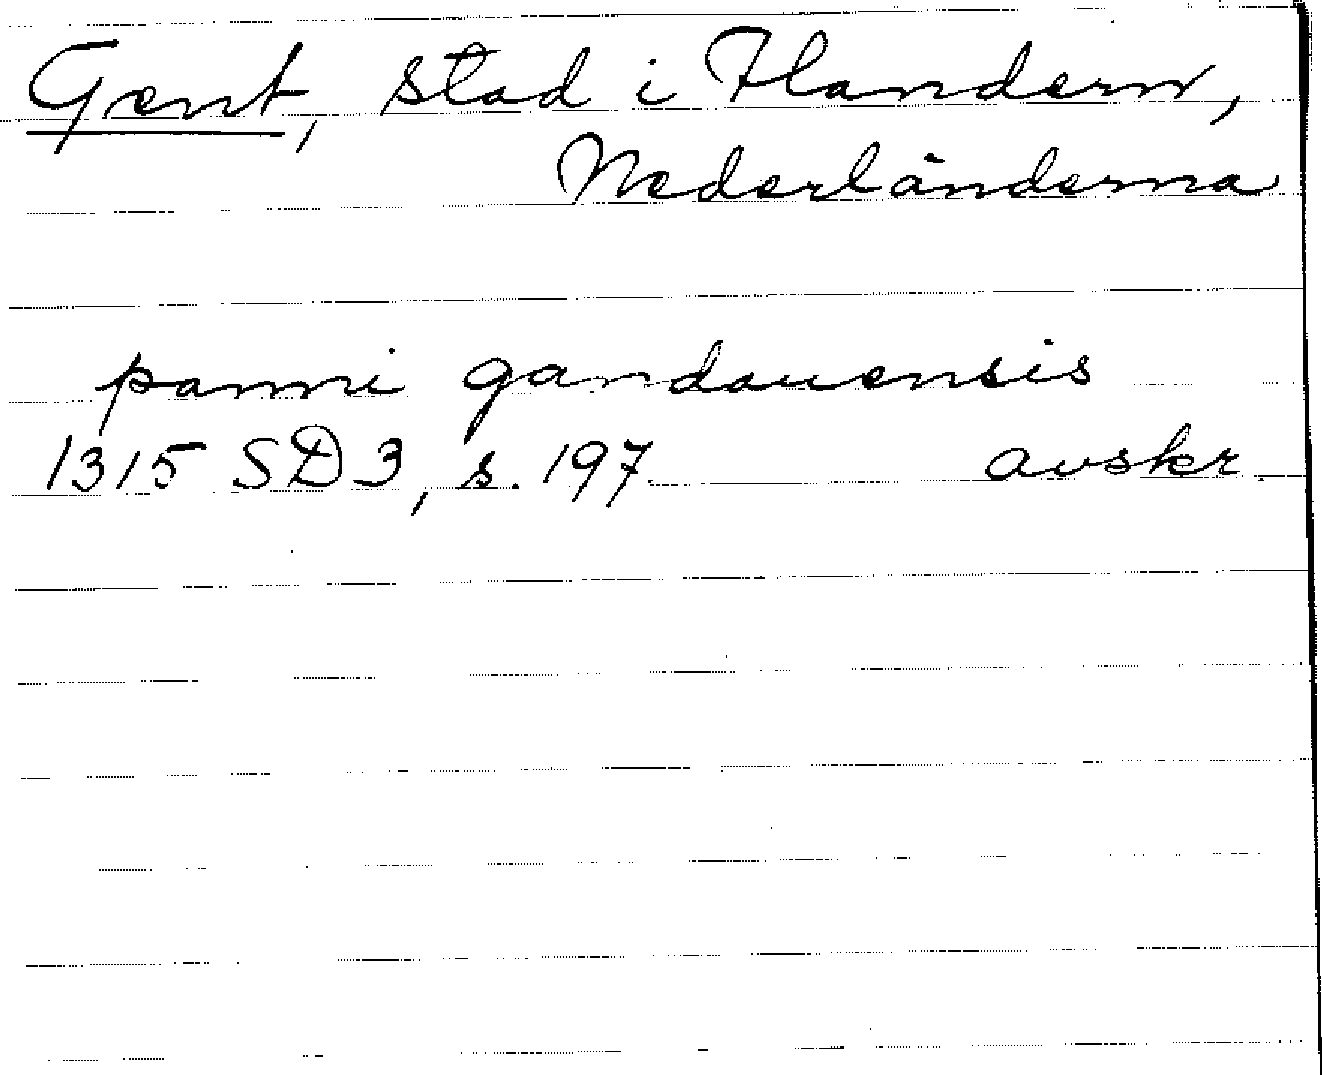 Gent, stad i Flandern,
Nederländerna
panni gandauensis
1315 SD 3, s. 197 avskr.